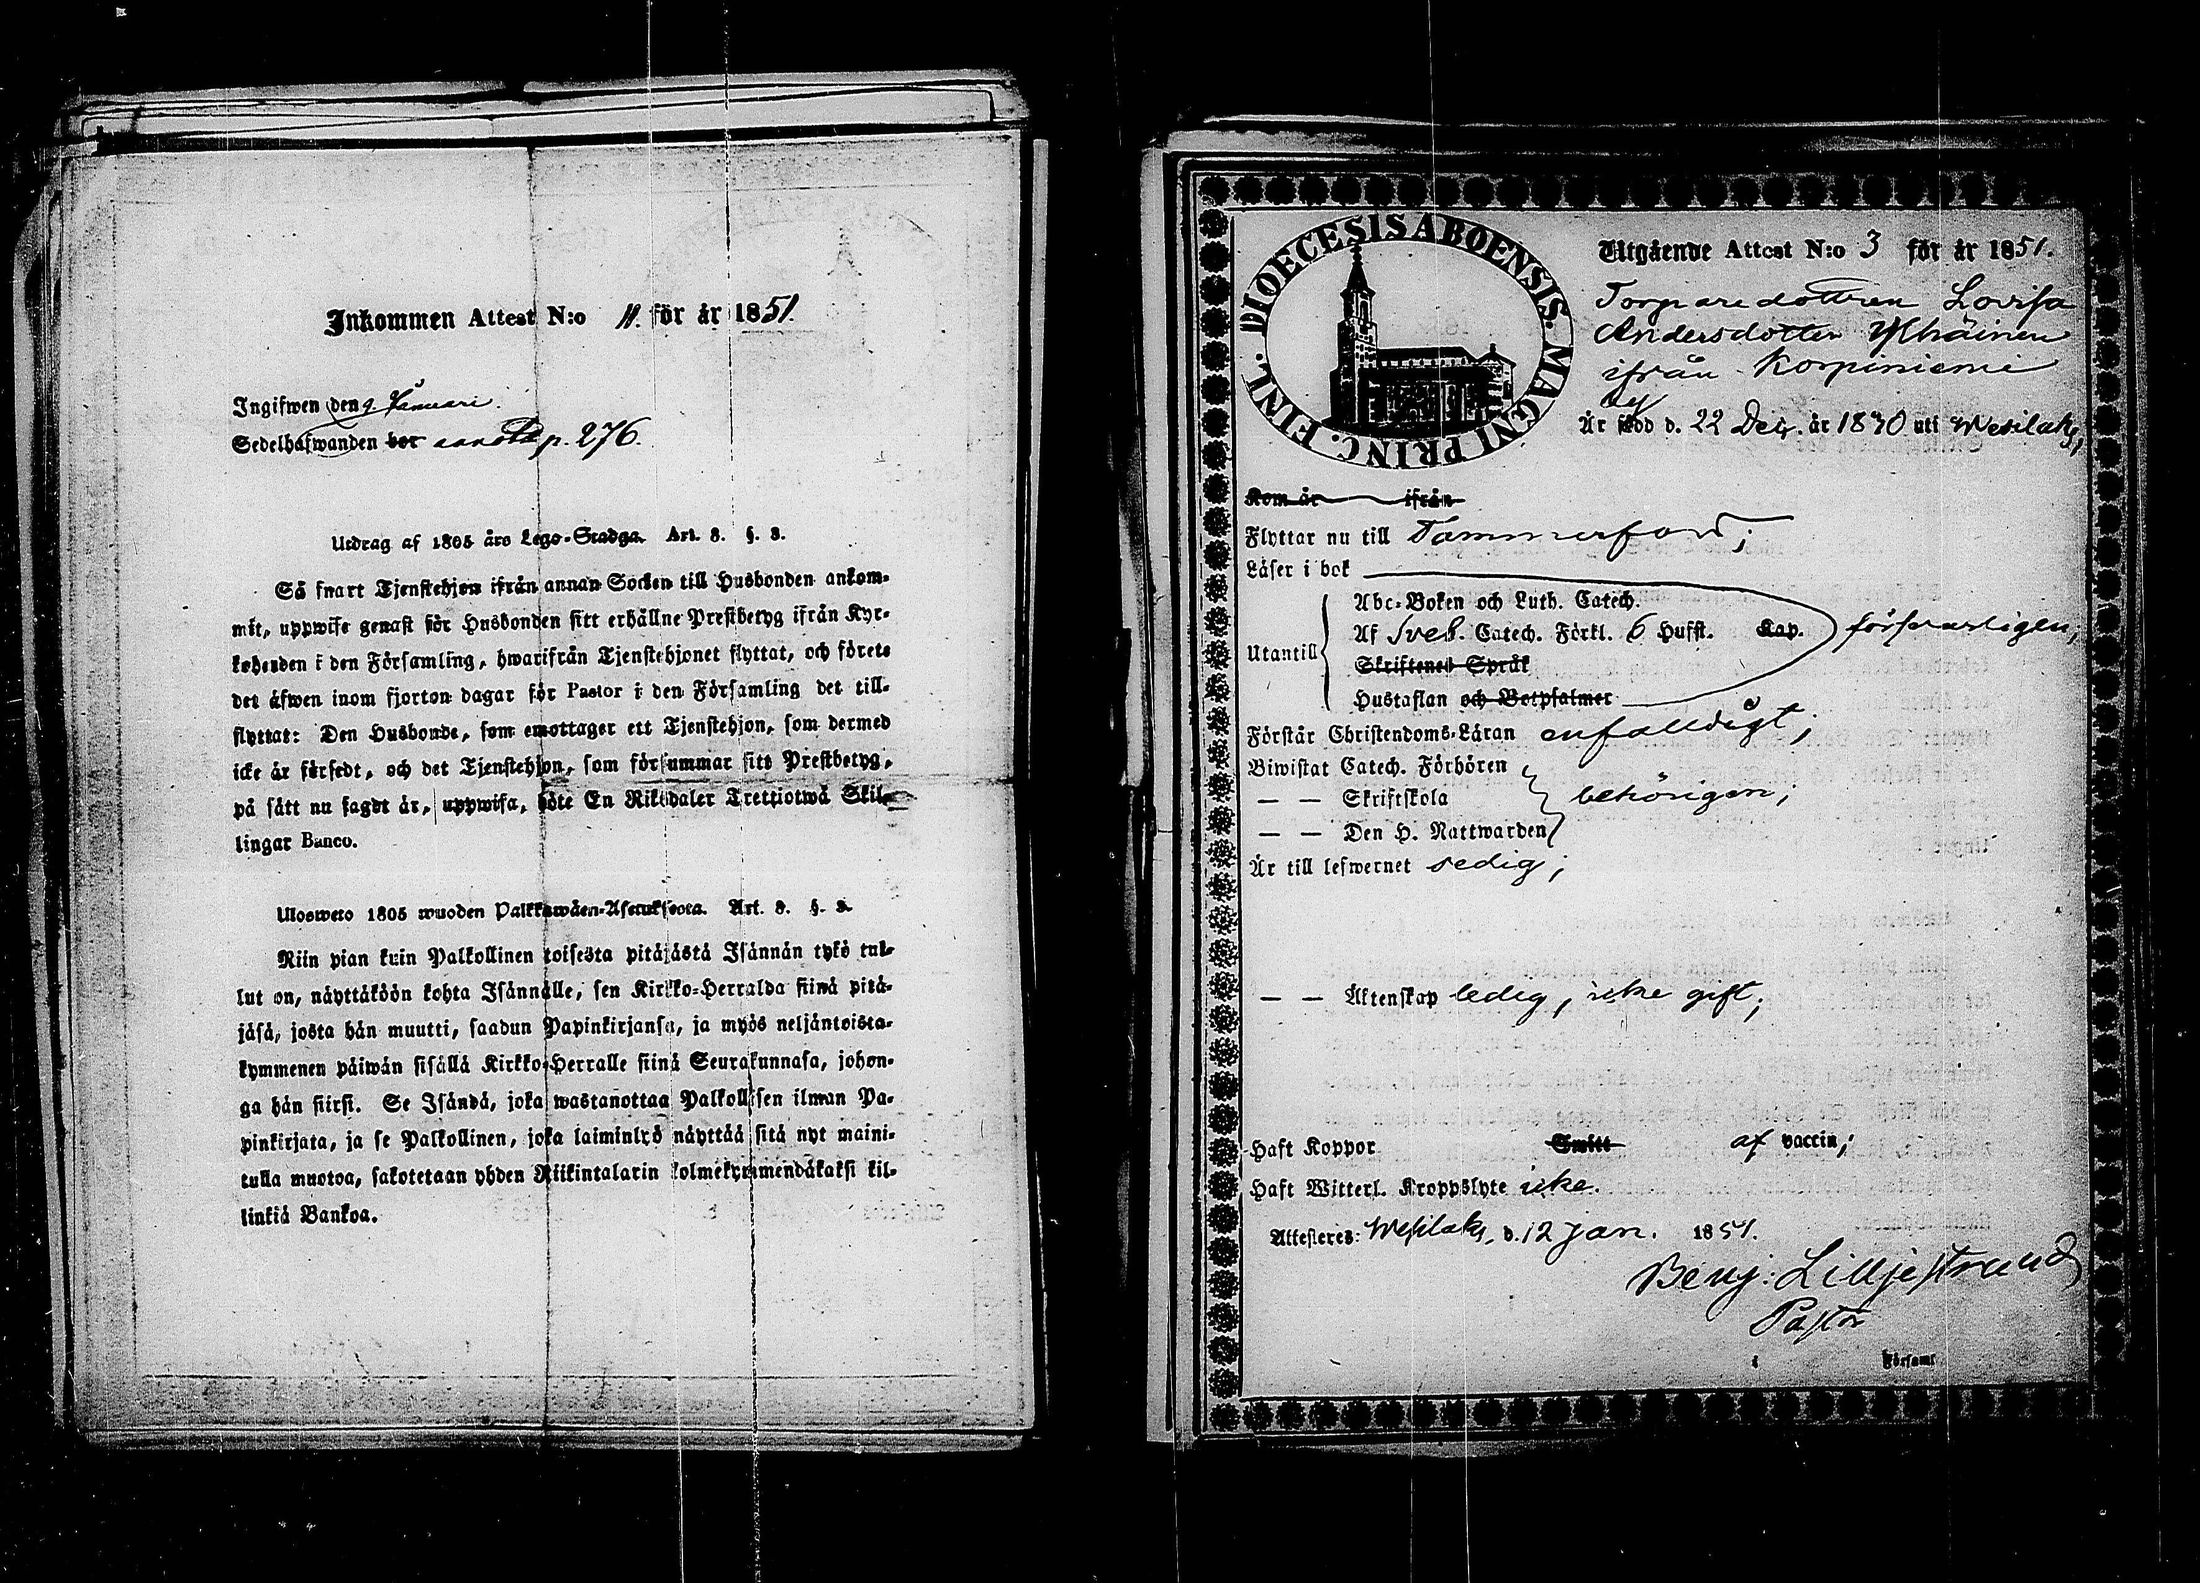 Inkommen Attest N:o 11. för år 1851.
Ingifwen den 9. Januari.
Sedelhafwanden bor p. 276.
Utdrag af 1805 års Lego-Stadga. Art. 8. §. 3.
Så snart Tjenstehjon ifrån annan Socken till Husbonden ankom-
mit, uppwise genast för Husbonden sitt erhållne Prestbetyg ifrån Kyr-
koherden i den Församling, hwarifrån Tjenstehjonet flyttat, och förete
det äfwen inom fjorton dagar för Pastor i den Församling det till-
flyttat: Den Husbonde, som emottager ett Tjenstehjon, som dermed
icke är försedt, och det Tjenstehjon, som försummar sitt Prestbetyg,
på sätt nu sagdt är, uppwisa, böte En Riksdaler Trettiotwå Skil-
lingar Banco.
Ulosweto 1805 wuoden Palkkawäen-Asetuksesta. Art. 8. §. 3.
Niin pian kuin Palkollinen toisesta pitäjästä Isännän tykö tul-
lut on, näyttäköön kohta Isännälle, sen Kirkko-Herralda siinä pitä-
jäsä, josta hän muutti, saadun Papinkirjansa, ja myös neljäntoista-
kymmenen päiwän sisällä Kirkko-Herralle siinä Seurakunnasa, johon-
ga hän siirsi. Se Isändä, joka wastanottaa Palkollisen ilman Pa-
pinkirjata, ja se Palkollinen, joka laiminlyö näyttää sitä nyt maini-
tulla muotoa, sakotetaan yhden Riikintalarin kolmekymmendäkaksi kil-
linkiä Bankoa.
DIOECESIS ABOENSIS. MAGNI PRINC. FINL.
Utgående Attest N:o 3 för år 1851.
Torparedottren Lovisa
Andersdotter Ylhäinen
ifrån Korpiniemi
Är född d. 22 Dec. år 1830 uti Wesilaks,
Kom år ifrån
Flyttar nu till Tammerfors;
Läser i bok
Utantill
Abc-Boken och Luth. Catech.
Af Sveb. Catech. Förkl. 6 Hufst. Kap. försvarligen,
Skriftenes Språk
Hustaflan och Botpsalmer
Förstår Christendoms-Läran enfalldigt;
Biwistat Catech. Förhören
— — Skriftskola behörigen;
— — Den H. Nattwarden
Är till lefwernet sedig;
— — Äktenskap ledig, icke gift;
Haft Koppor Smitt af vaccin;
Haft Witterl. Kroppslyte icke.
Attesteres: Wesilaks, d. 12 Jan. 1851.
Benj: Lilljestrand
Pastor
i Församl